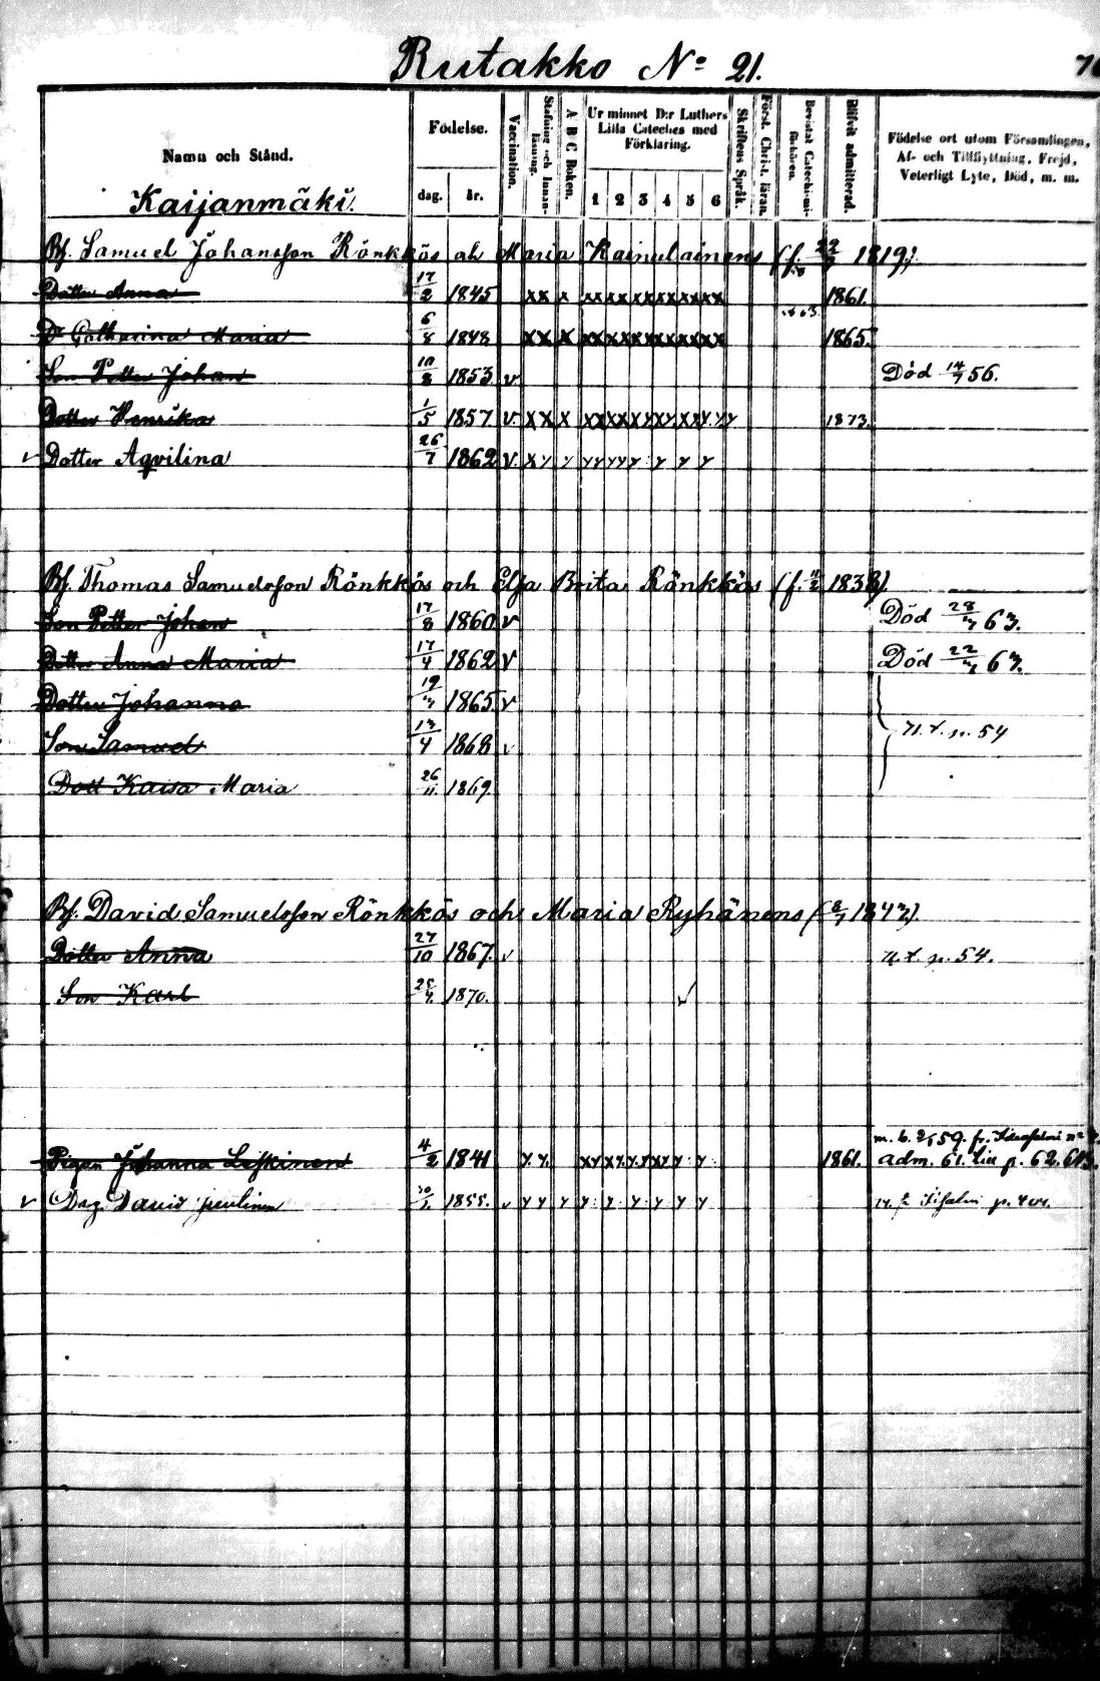 Rutakko No 21.
Namn och Stånd.
Födelse.
dag. år.
Vaccination.
Stafning och Innanläsning.
A B C Boken.
Ur minnet D:r Luthers
Lilla Cateches med
Förklaring.
1 2 3 4 5 6
Skriftens Språk.
Först. Christ. läran.
Bevistat Catechismi-
förhören.
Blifvit admitterad.
Födelse ort utom Församlingen,
Af- och Tillflyttning, Frejd,
Veterligt Lyte, Död, m. m.
Kaijanmäki.
Bf. Samuel Johansson Rönkkös ah Maria Kainulainens (f. 1819)
Dotter Anna 17/2 1845 xx x xx xx xx xx xx xx 1861.
Dr Catharina Maria 6/8 1848 xx x xx xx xx xx xx xx 1865.
Son Petter Johan 10/8 1853 v Död 14/7 56.
Dotter Henrika 1/5 1857 v. x x x 1873.
v Dotter Aqvilina 26/7 1862 v. x y y
Bf. Thomas Samuelsson Rönkkös och Elsa Brita Rönkkös (f. 1838)
Son Petter Johan 17/8 1860 v Död 63.
Dotter Anna Maria 17/4 1862 v Död 63.
Dotter Johanna 1865 v
Son Samuel 13/4 1868 v p. 54
Dott Kaisa Maria 26/11. 1869.
Bf. David Samuelsson Rönkkös och Maria Ryhänens ( 1843)
Dotter Anna 27/10 1867. v p. 54.
Son Karl 1870. v
m. b. 2/5 59. fr.
Pigan Johanna Leskinen 4/2 1841 1861. adm. 61. p. 62.
v Drg David 1855. v y y y y y y y y y p.